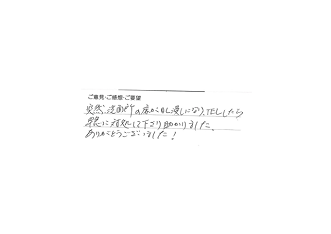 ご意見・ご感想・ご要望
突然、洗面所の床が水漏しになり、TELしたら
早急に対処して下さり助かりました。
ありがとうございました!